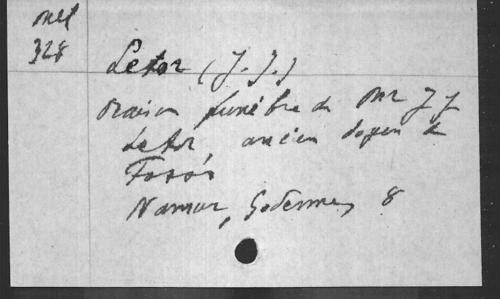 Mel
328
Letor (J. J.)
oraison funèbre de Mr J J
Letor, ancien doyen de
Fosses
Namur, Godenne, 8